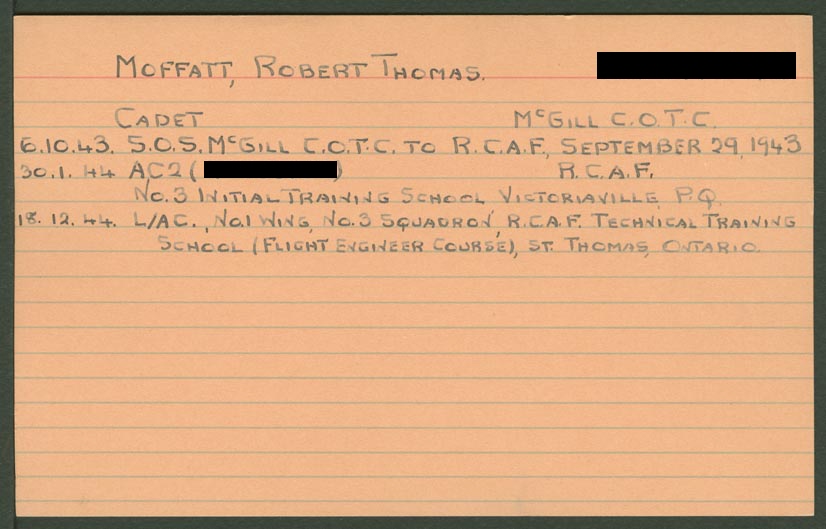 MOFFATT, ROBERT THOMAS.
CADET McGILL C.O.T.C.
6.10.43. S.O.S. McGILL C.O.T.C. TO R.C.A.F., SEPTEMBER 29, 1943
30.1.44 AC2 ( ) R.C.A.F.
No.3 INITIAL TRAINING SCHOOL VICTORIAVILLE, P.Q.
18.12.44. L/AC., No.1 WING, No.3 SQUADRON, R.C.A.F. TECHNICAL TRAINING
SCHOOL (FLIGHT ENGINEER COURSE), ST. THOMAS, ONTARIO.